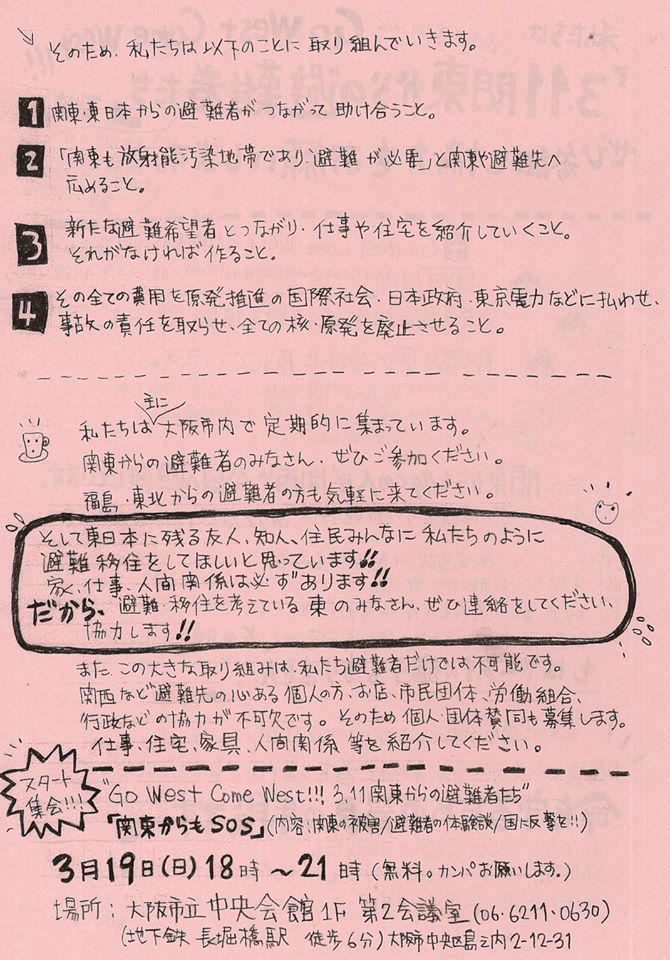 そのため、私たちは以下のことに取り組んでいきます。
1 関東・東日本からの避難者がつながって助け合うこと。
2 「関東も放射能汚染地帯であり避難が必要」と関東や避難先へ
広めること。
3 新たな避難希望者とつながり、仕事や住宅を紹介していくこと。
それがなければ作ること。
4 その全ての費用を原発推進の国際社会・日本政府・東京電力などに払わせ、
事故の責任を取らせ、全ての核・原発を廃止させること。
主に
私たちは大阪市内で定期的に集まっています。
関東からの避難者のみなさん、ぜひご参加ください。
福島・東北からの避難者の方も気軽に来てください。
そして東日本に残る友人、知人、住民みんなに私たちのように
避難移住をしてほしいと思っています!!
家、仕事、人間関係は必ずあります!!
だから、避難・移住を考えている東のみなさん、ぜひ連絡をしてください、
協力します!!
また、この大きな取り組みは、私たち避難者だけでは不可能です。
関西など避難先の心ある個人の方、お店、市民団体、労働組合、
行政などの協力が不可欠です。そのため個人・団体賛同も募集します。
仕事、住宅、家具、人間関係等を紹介してください。
スタート
集会!!!
"Go West Come West!!! 3.11関東からの避難者たち"
「関東からもSOS」(内容:関東の被害/避難者の体験談/国に反撃を!!)
3月19日(日)18時〜21時(無料。カンパお願いします。)
場所:大阪市立中央会館1F 第2会議室(06・6211・0630)
(地下鉄 長堀橋駅 徒歩6分)大阪市中央区島之内2-12-31